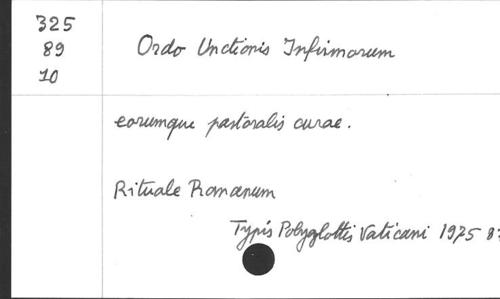 325
89
10
Ordo Unctionis Infirmorum
eorumque pastoralis curae.
Rituale Romanum
Typis Polyglottis Vaticani 1975